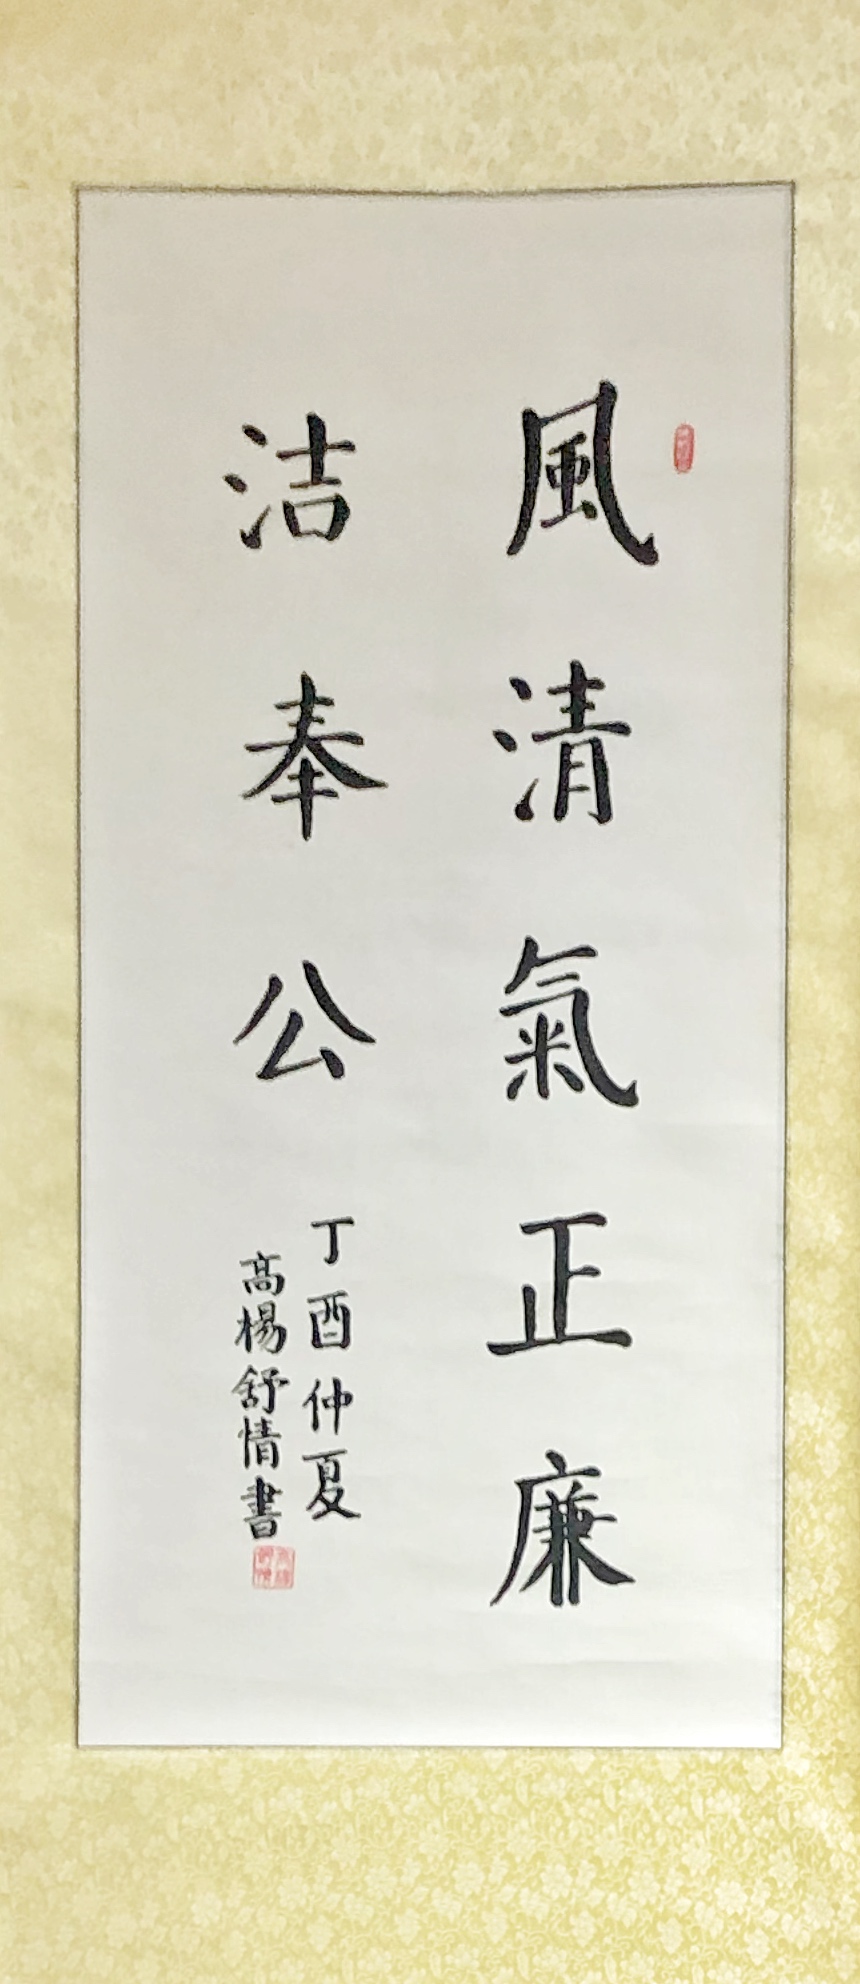 風清氣正廉
洁奉公
丁酉仲夏
高楊舒情書